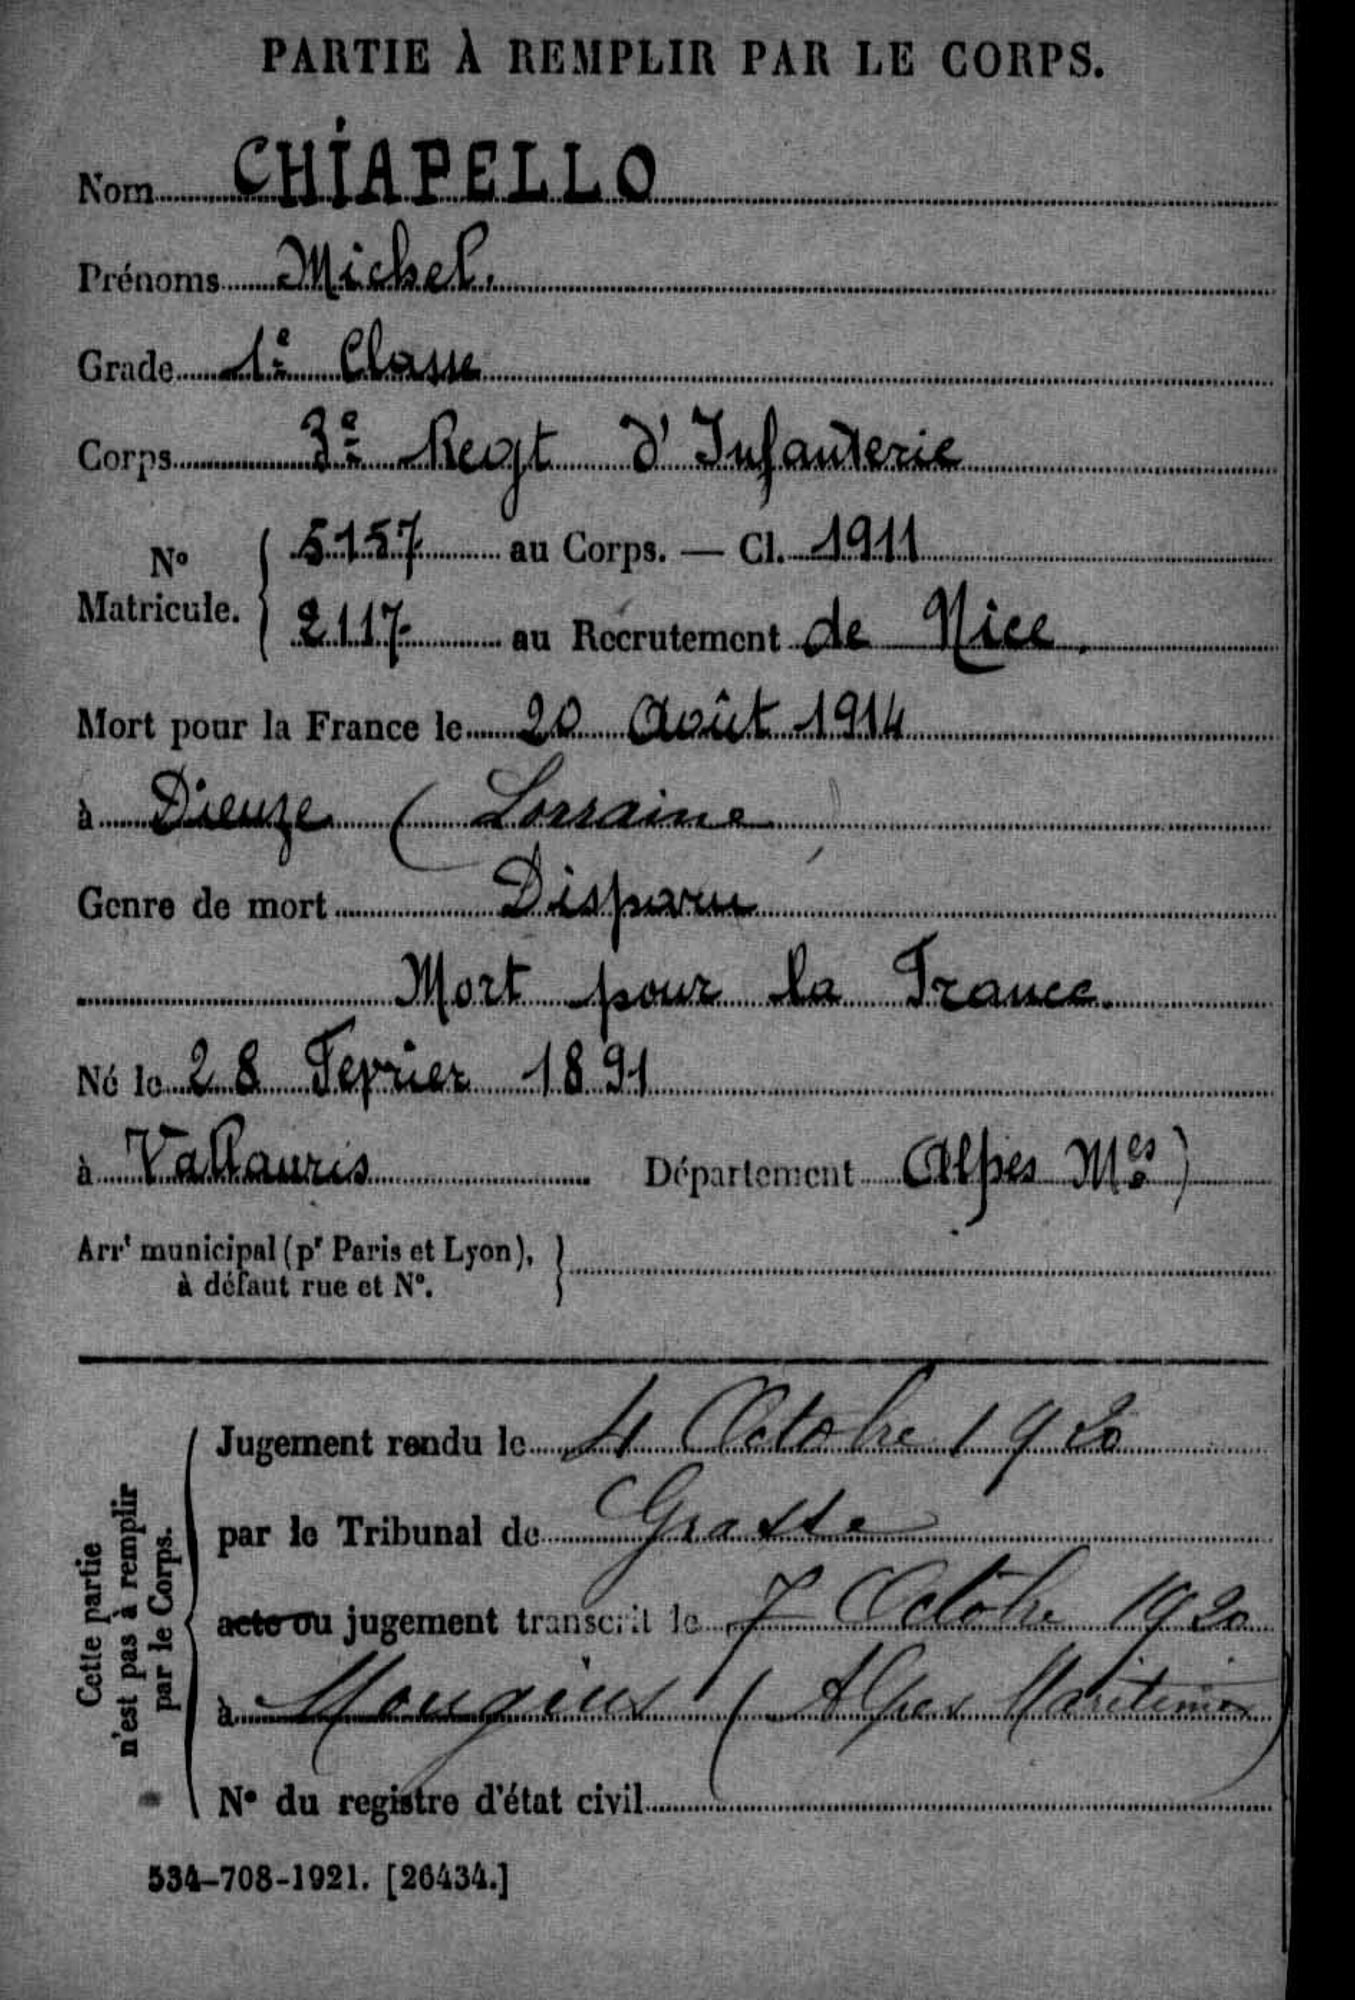 PARTIE À REMPLIR PAR LE CORPS.
Nom CHIAPELLO
Prénoms Michel.
Grade 1e Classe
Corps 3e Regt d'Infanterie
No Matricule. { 5157 au Corps. — Cl. 1911
2117 au Recrutement de Nice.
Mort pour la France le 20 Août 1914
à Dieuze ( Lorraine )
Genre de mort Disparu
Mort pour la France.
Né le 28 Fevrier 1891
à Vallauris Département Alpes Mes)
Arrt municipal (pr Paris et Lyon), }
à défaut rue et No.
Cette partie
n'est pas à remplir
par le Corps.
Jugement rendu le 4 Octobre 1920
par le Tribunal de Grasse
acte ou jugement transcrit le 7 Octobre 1920
à Mougins ( Alpes Maritimes )
No du registre d'état civil
534-708-1921. [26434.]